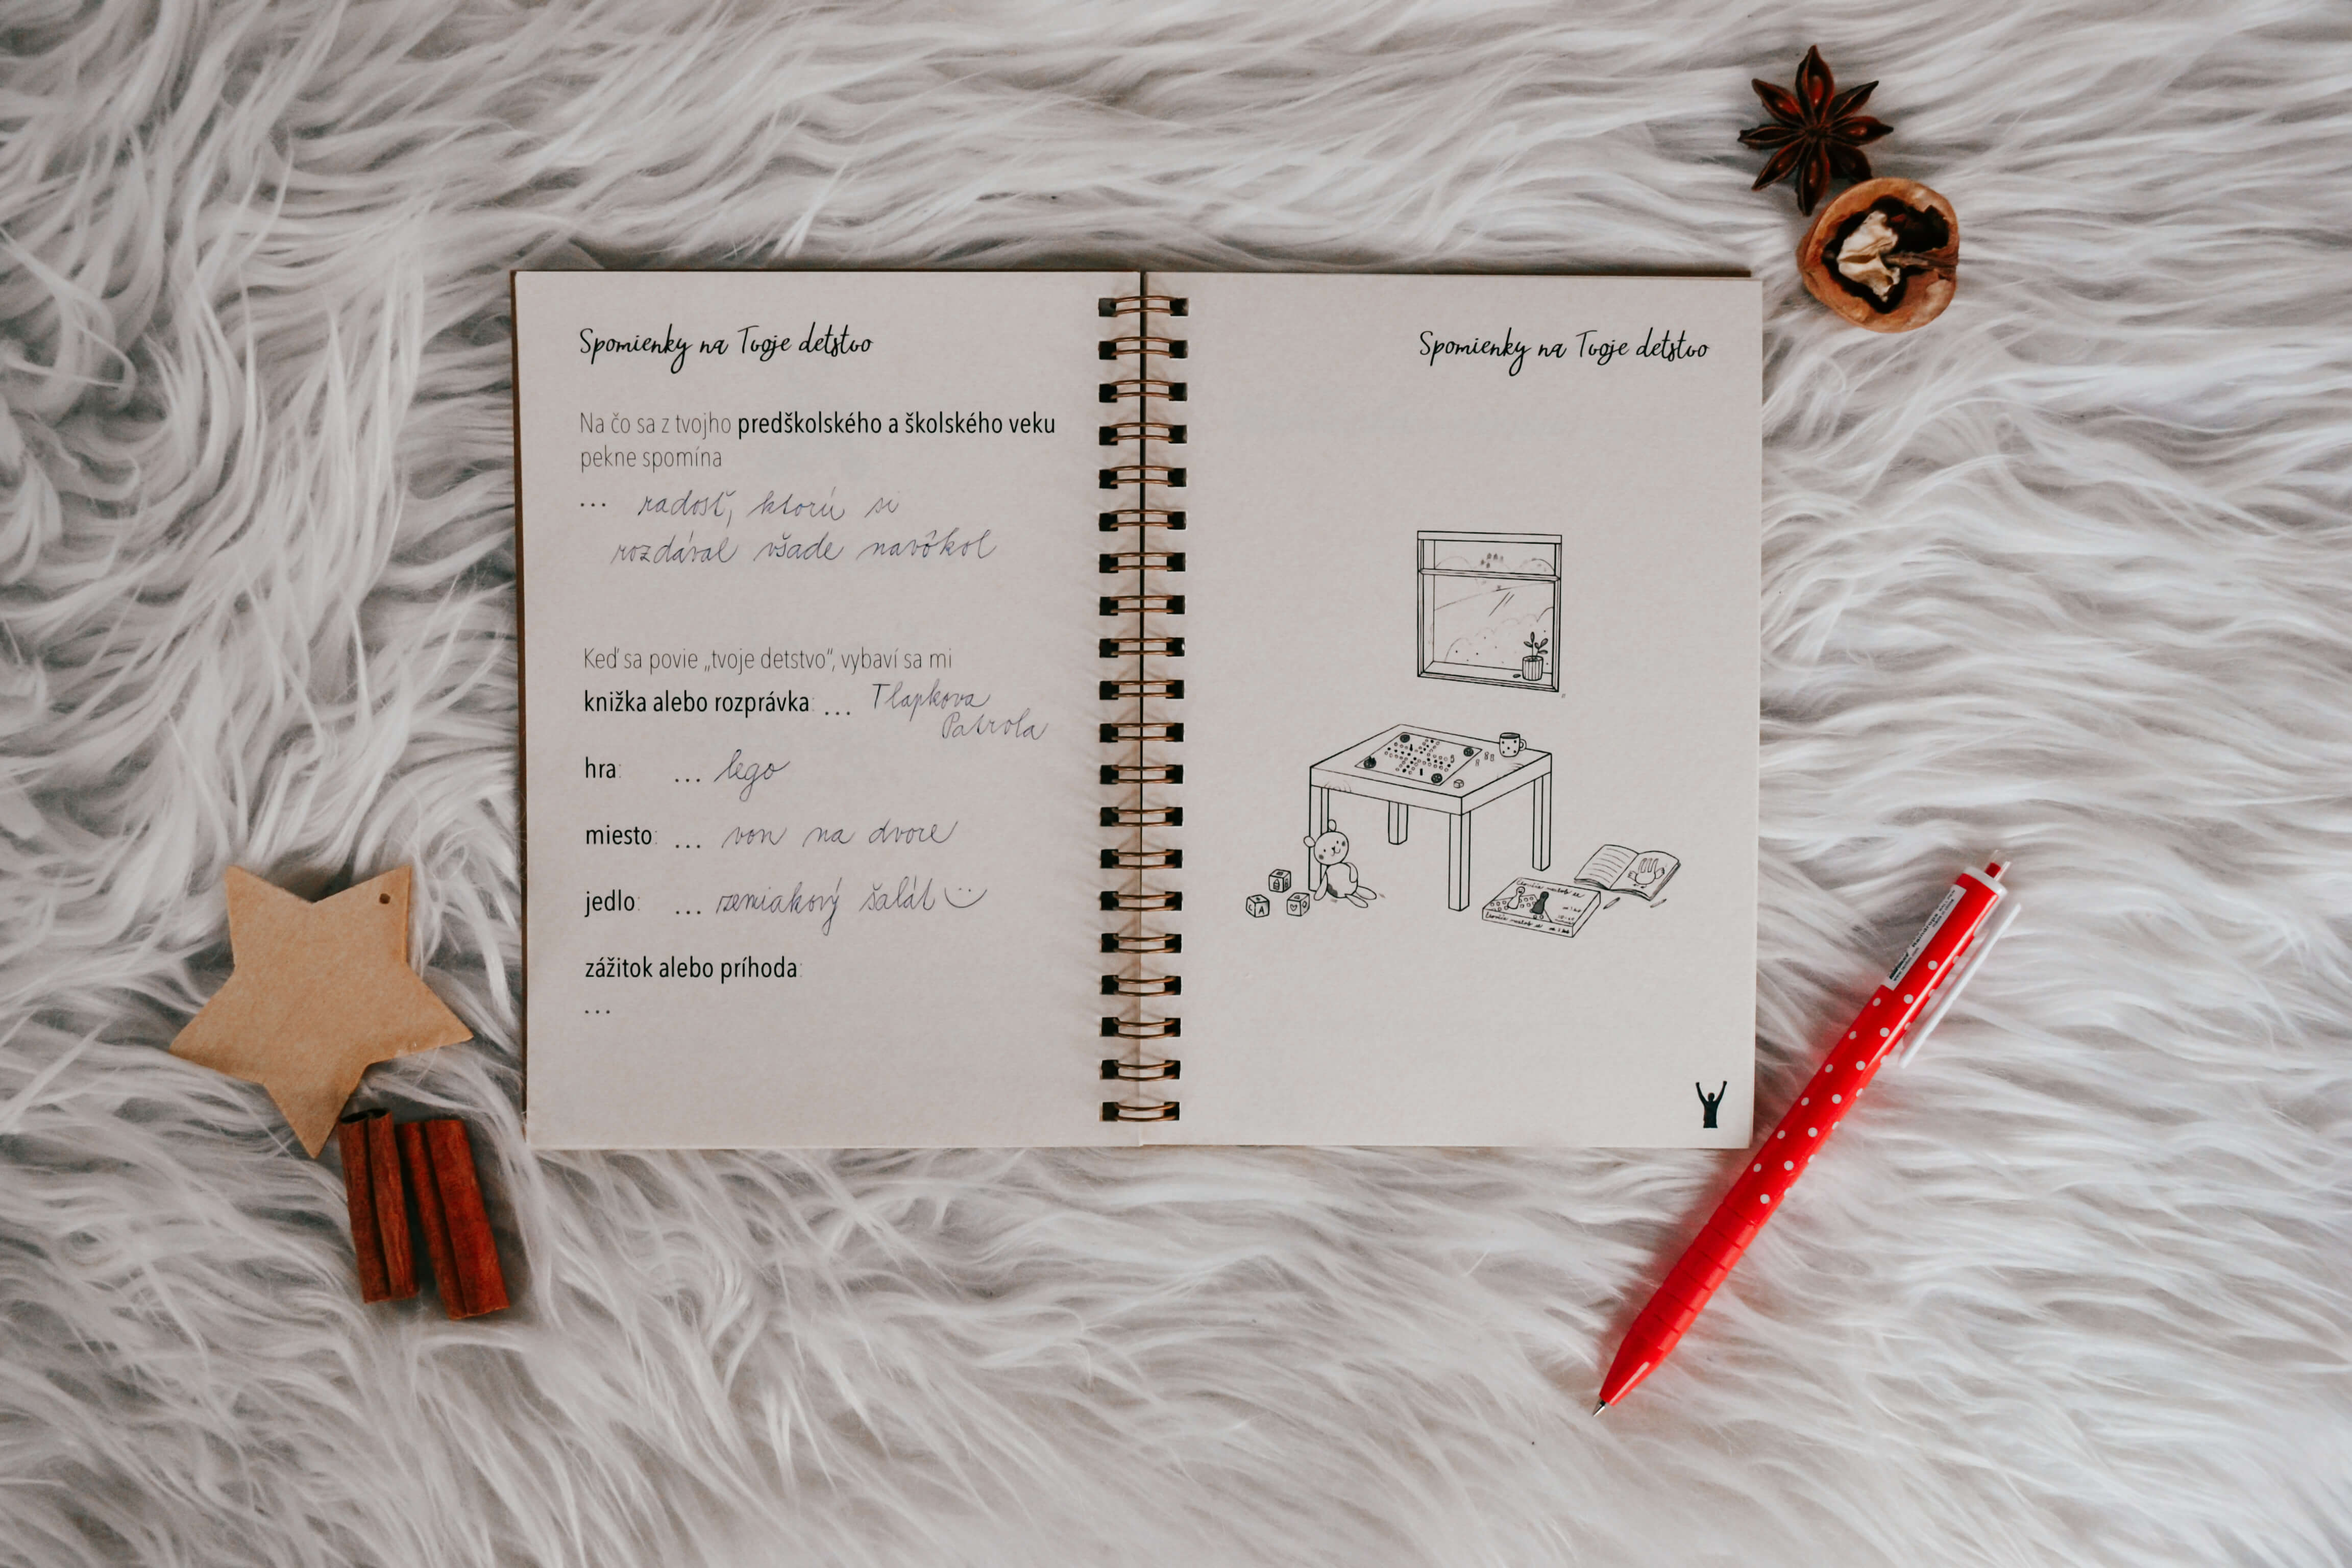 Spomienky na Tvoje detstvo
Na čo sa z tvojho predškolského a školského veku
pekne spomína
... radosť, ktorú si
rozdával všade navôkol
Keď sa povie „tvoje detstvo“, vybaví sa mi
knižka alebo rozprávka: ... Tlapkova
Patrola
hra: ... lego
miesto: ... von na dvore
jedlo: ... zemiakový šalát
zážitok alebo príhoda:
...
Spomienky na Tvoje detstvo